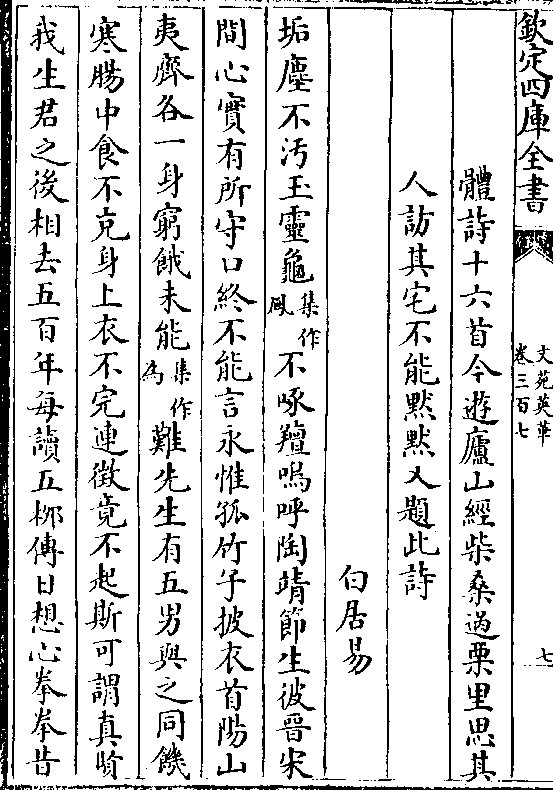 欽定四庫全書
文苑英華
卷三百七
七
體詩十六首今遊廬山經柴桑過栗里思其
人訪其宅不能黙黙又題此詩
白居易
垢塵不汚玉靈龜集作鳳不啄羶嗚呼陶靖節生彼晉宋
間心實有所守口終不能言永惟孤竹子披衣首陽山
夷齊各一身窮餓未能集作為難先生有五男與之同饑
寒腸中食不充身上衣不完連徵竟不起斯可謂真賢
我生君之後相去五百年每讀五栁傳目想心拳拳昔